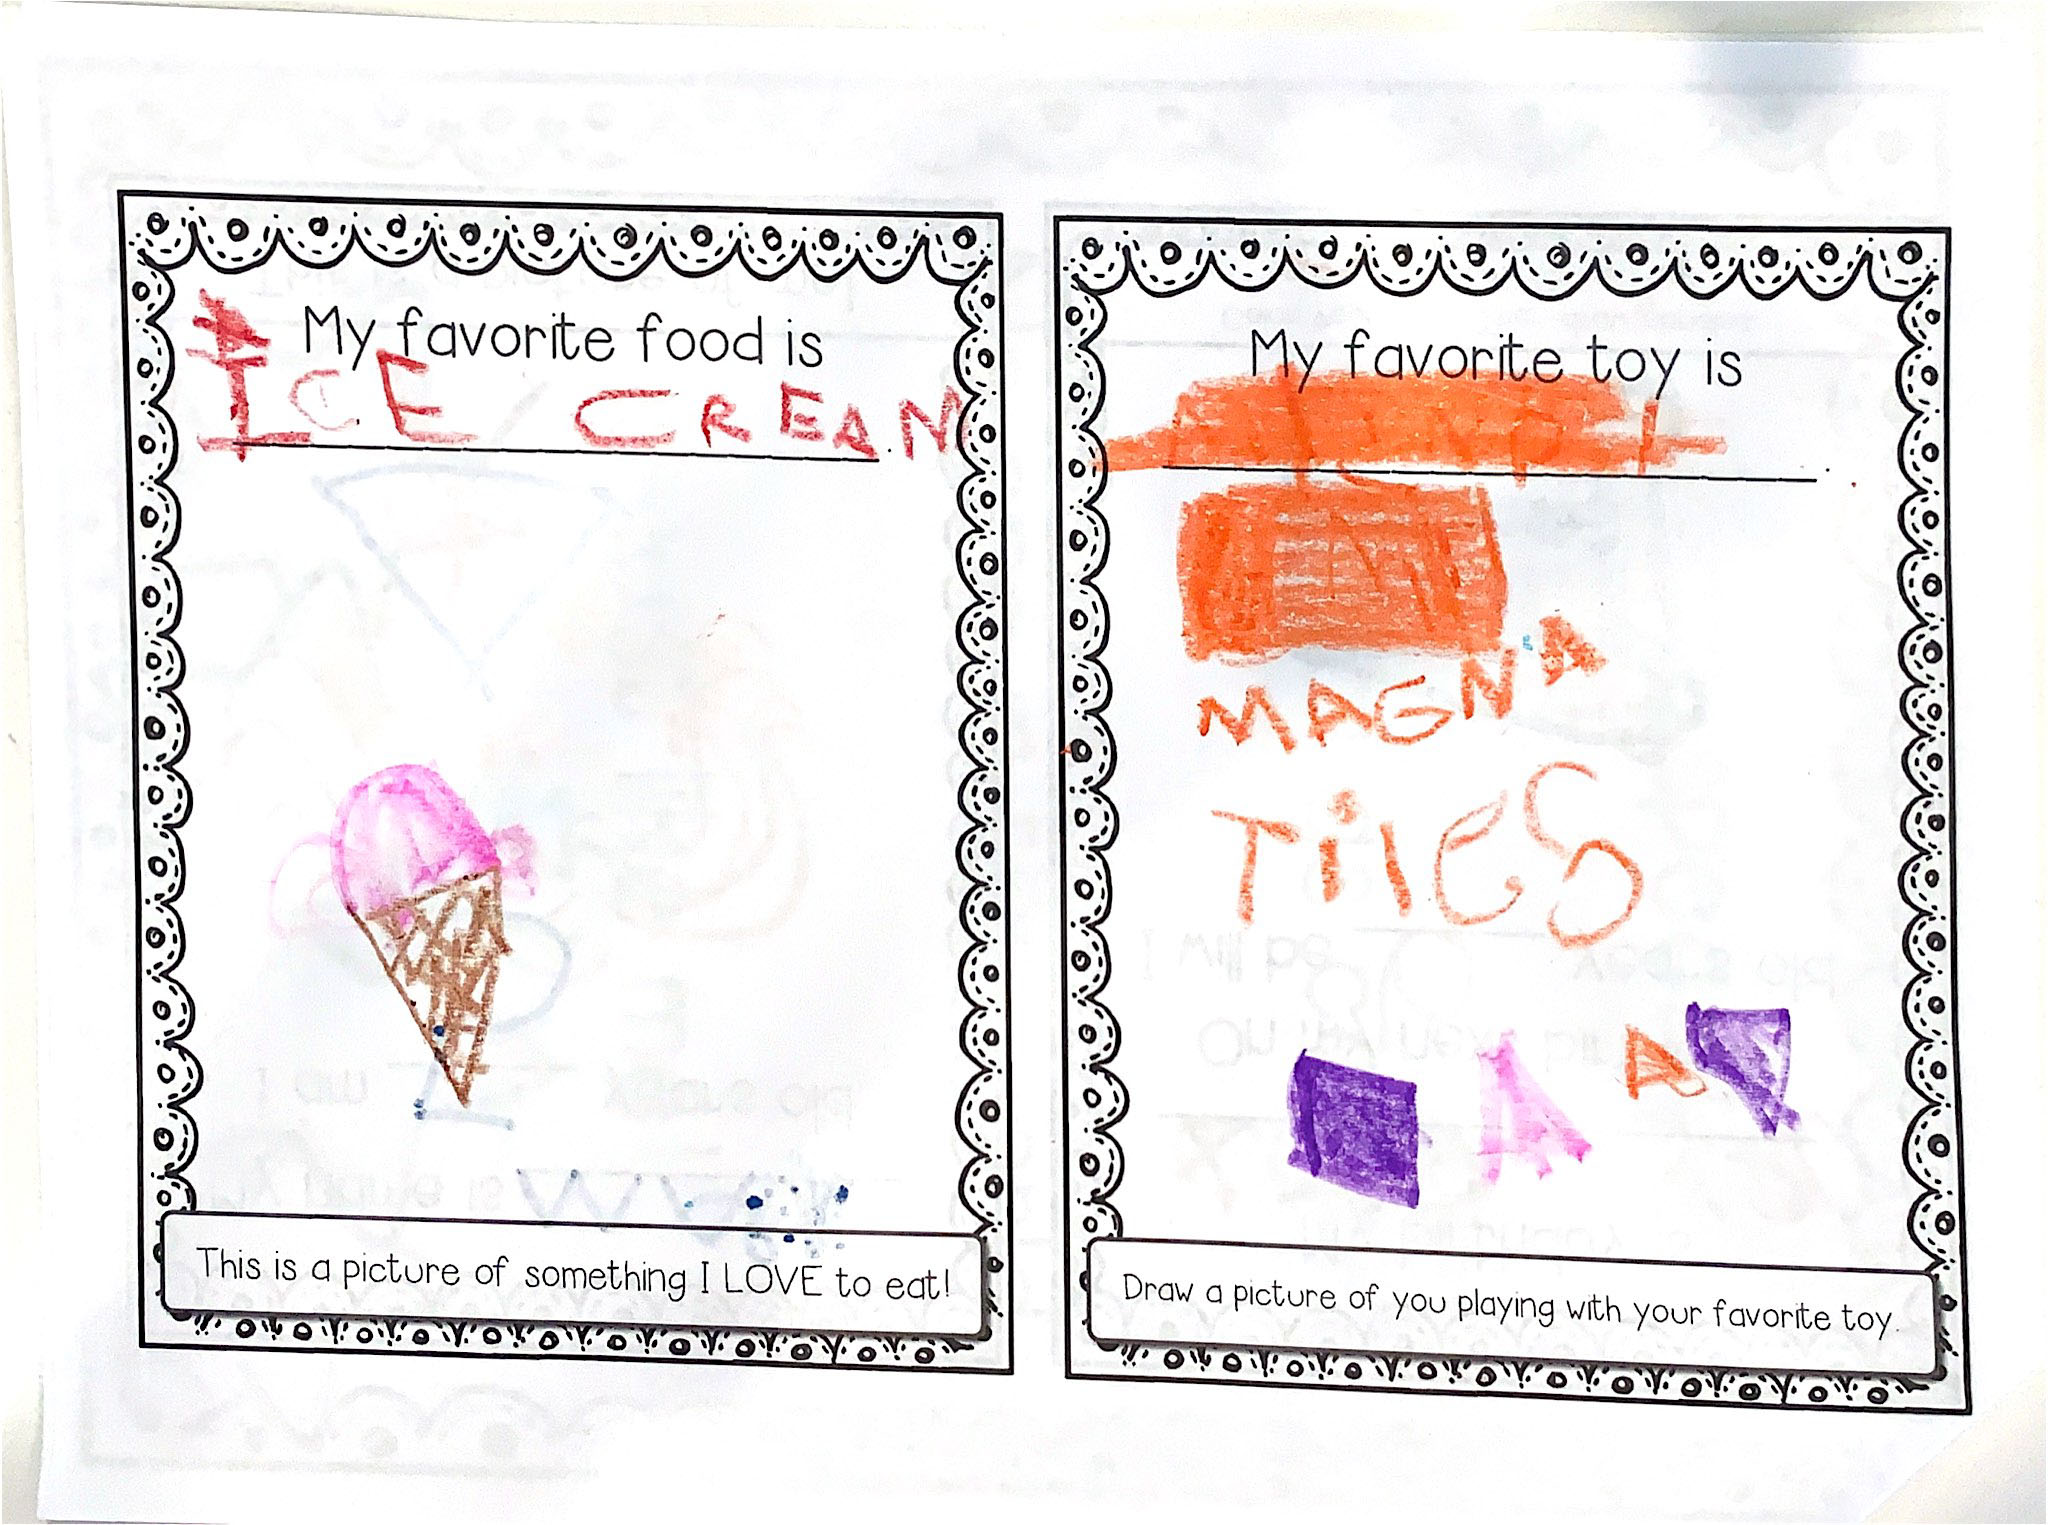 My favorite food is
ICE CREAN.
This is a picture of something I LOVE to eat!
My favorite toy is
MAGNA
TilES
Draw a picture of you playing with your favorite toy.